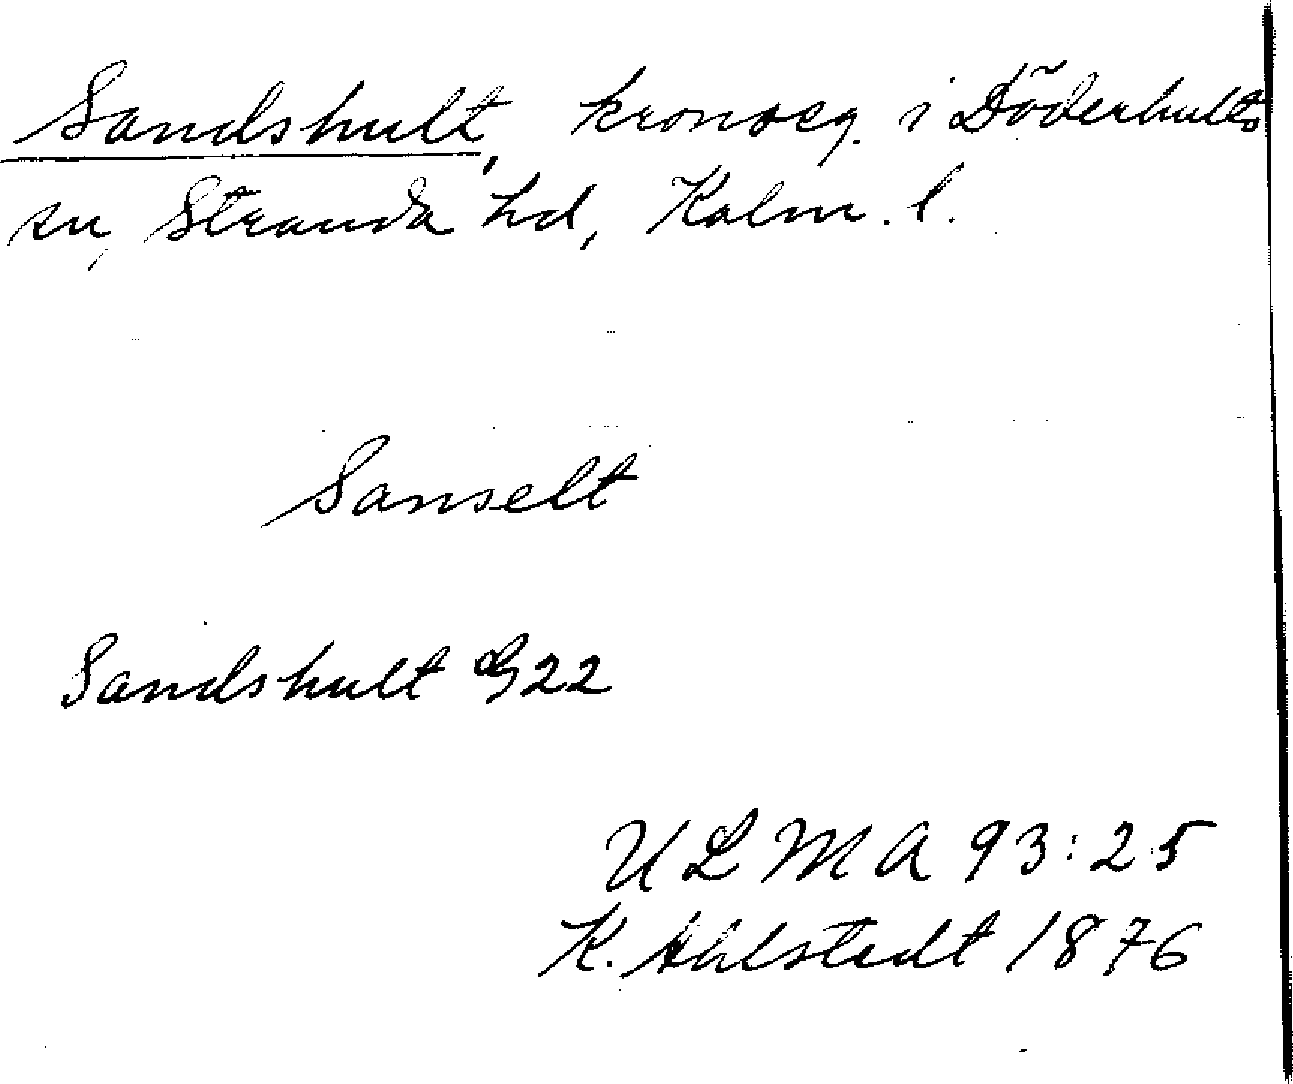 Sandshult, kronoeg. i Döderhults
sn, Stranda hd, Kalm. l.
Sanselt
Sandshult G22
ULMA 93:25
K. Ahlstedt 1876